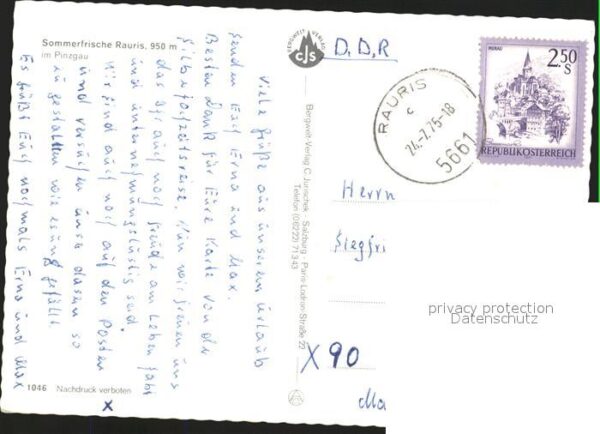 Sommerfrische Rauris, 950 m
im Pinzgau
Viele Grüße aus unserem Urlaub
senden Euch Erna und Max.
Besten Dank für Eure Karte von der
Silberhochzeitsreise. Nun wir freuen uns
das Ihr auch noch Freude am Leben habt
und unternehmungslustig seid.
Wir sind auch noch auf den Posten
und versuchen unser dasein so
zu gestalten wie es uns gefällt
Es grüßt Euch nochmals Erna und Max
1046 Nachdruck verboten
x
BERGWELT VERLAG
cJs
Bergwelt-Verlag C. Jurischek, Salzburg · Paris-Lodron-Straße 22
Telefon (06222) 71343
D.D.R
RAURIS
c
24.-7.75-18
5661
MURAU
2.50
S
REPUBLIK ÖSTERREICH
Herrn
Siegfri
X 90
privacy protection
Datenschutz